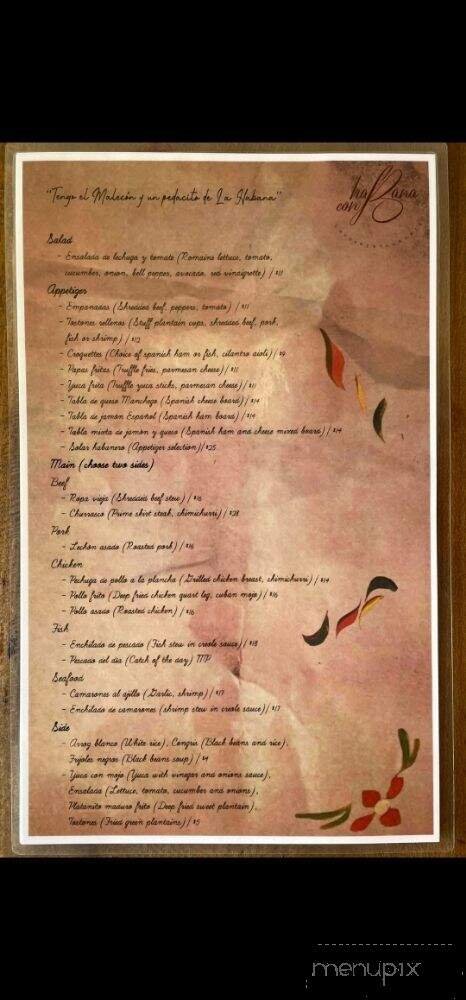 "Tengo el Malecón y un pedacito de La Habana"
con haBana
Salad
- Ensalada de lechuga y tomate (Romaine lettuce, tomato,
cucumber, onion, bell pepper, avocado, red vinaigrette) / $11
Appetizer
- Empanadas (Shredded beef, peppers, tomato) / $11
- Tostones rellenos (Stuff plantain cups, shredded beef, pork,
fish or shrimp) / $12
- Croquettes (Choice of spanish ham or fish, cilantro aioli) / $9
- Papas fritas (Truffle fries, parmesan cheese) / $11
- Yuca frita (Truffle yuca sticks, parmesan cheese) / $11
- Tabla de queso Manchego (Spanish cheese board) / $14
- Tabla de jamón Español (Spanish ham board) / $14
- Tabla mixta de jamón y queso (Spanish ham and cheese mixed board) / $14
- Solar habanero (Appetizer selection) / $25
Main (choose two sides)
Beef
- Ropa vieja (Shredded beef stew) / $16
- Churrasco (Prime skirt steak, chimichurri) / $28
Pork
- Lechon asado (Roasted pork) / $16
Chicken
- Pechuga de pollo a la plancha (Grilled chicken breast, chimichurri) / $14
- Pollo frito (Deep fried chicken quart leg, cuban mojo) / $16
- Pollo asado (Roasted chicken) / $16
Fish
- Enchilado de pescado (Fish stew in creole sauce) / $18
- Pescado del dia (Catch of the day) MP
Seafood
- Camarones al ajillo (Garlic, shrimp) / $17
- Enchilado de camarones (shrimp stew in creole sauce) / $17
Side
- Arroz blanco (White rice), Congris (Black beans and rice),
Frijoles negros (Black beans soup) / $4
- Yuca con mojo (Yuca with vinegar and onions sauce),
Ensalada (Lettuce, tomato, cucumber and onions),
Platanito maduro frito (Deep fried sweet plantain),
Tostones (Fried green plantains) / $5
menupix